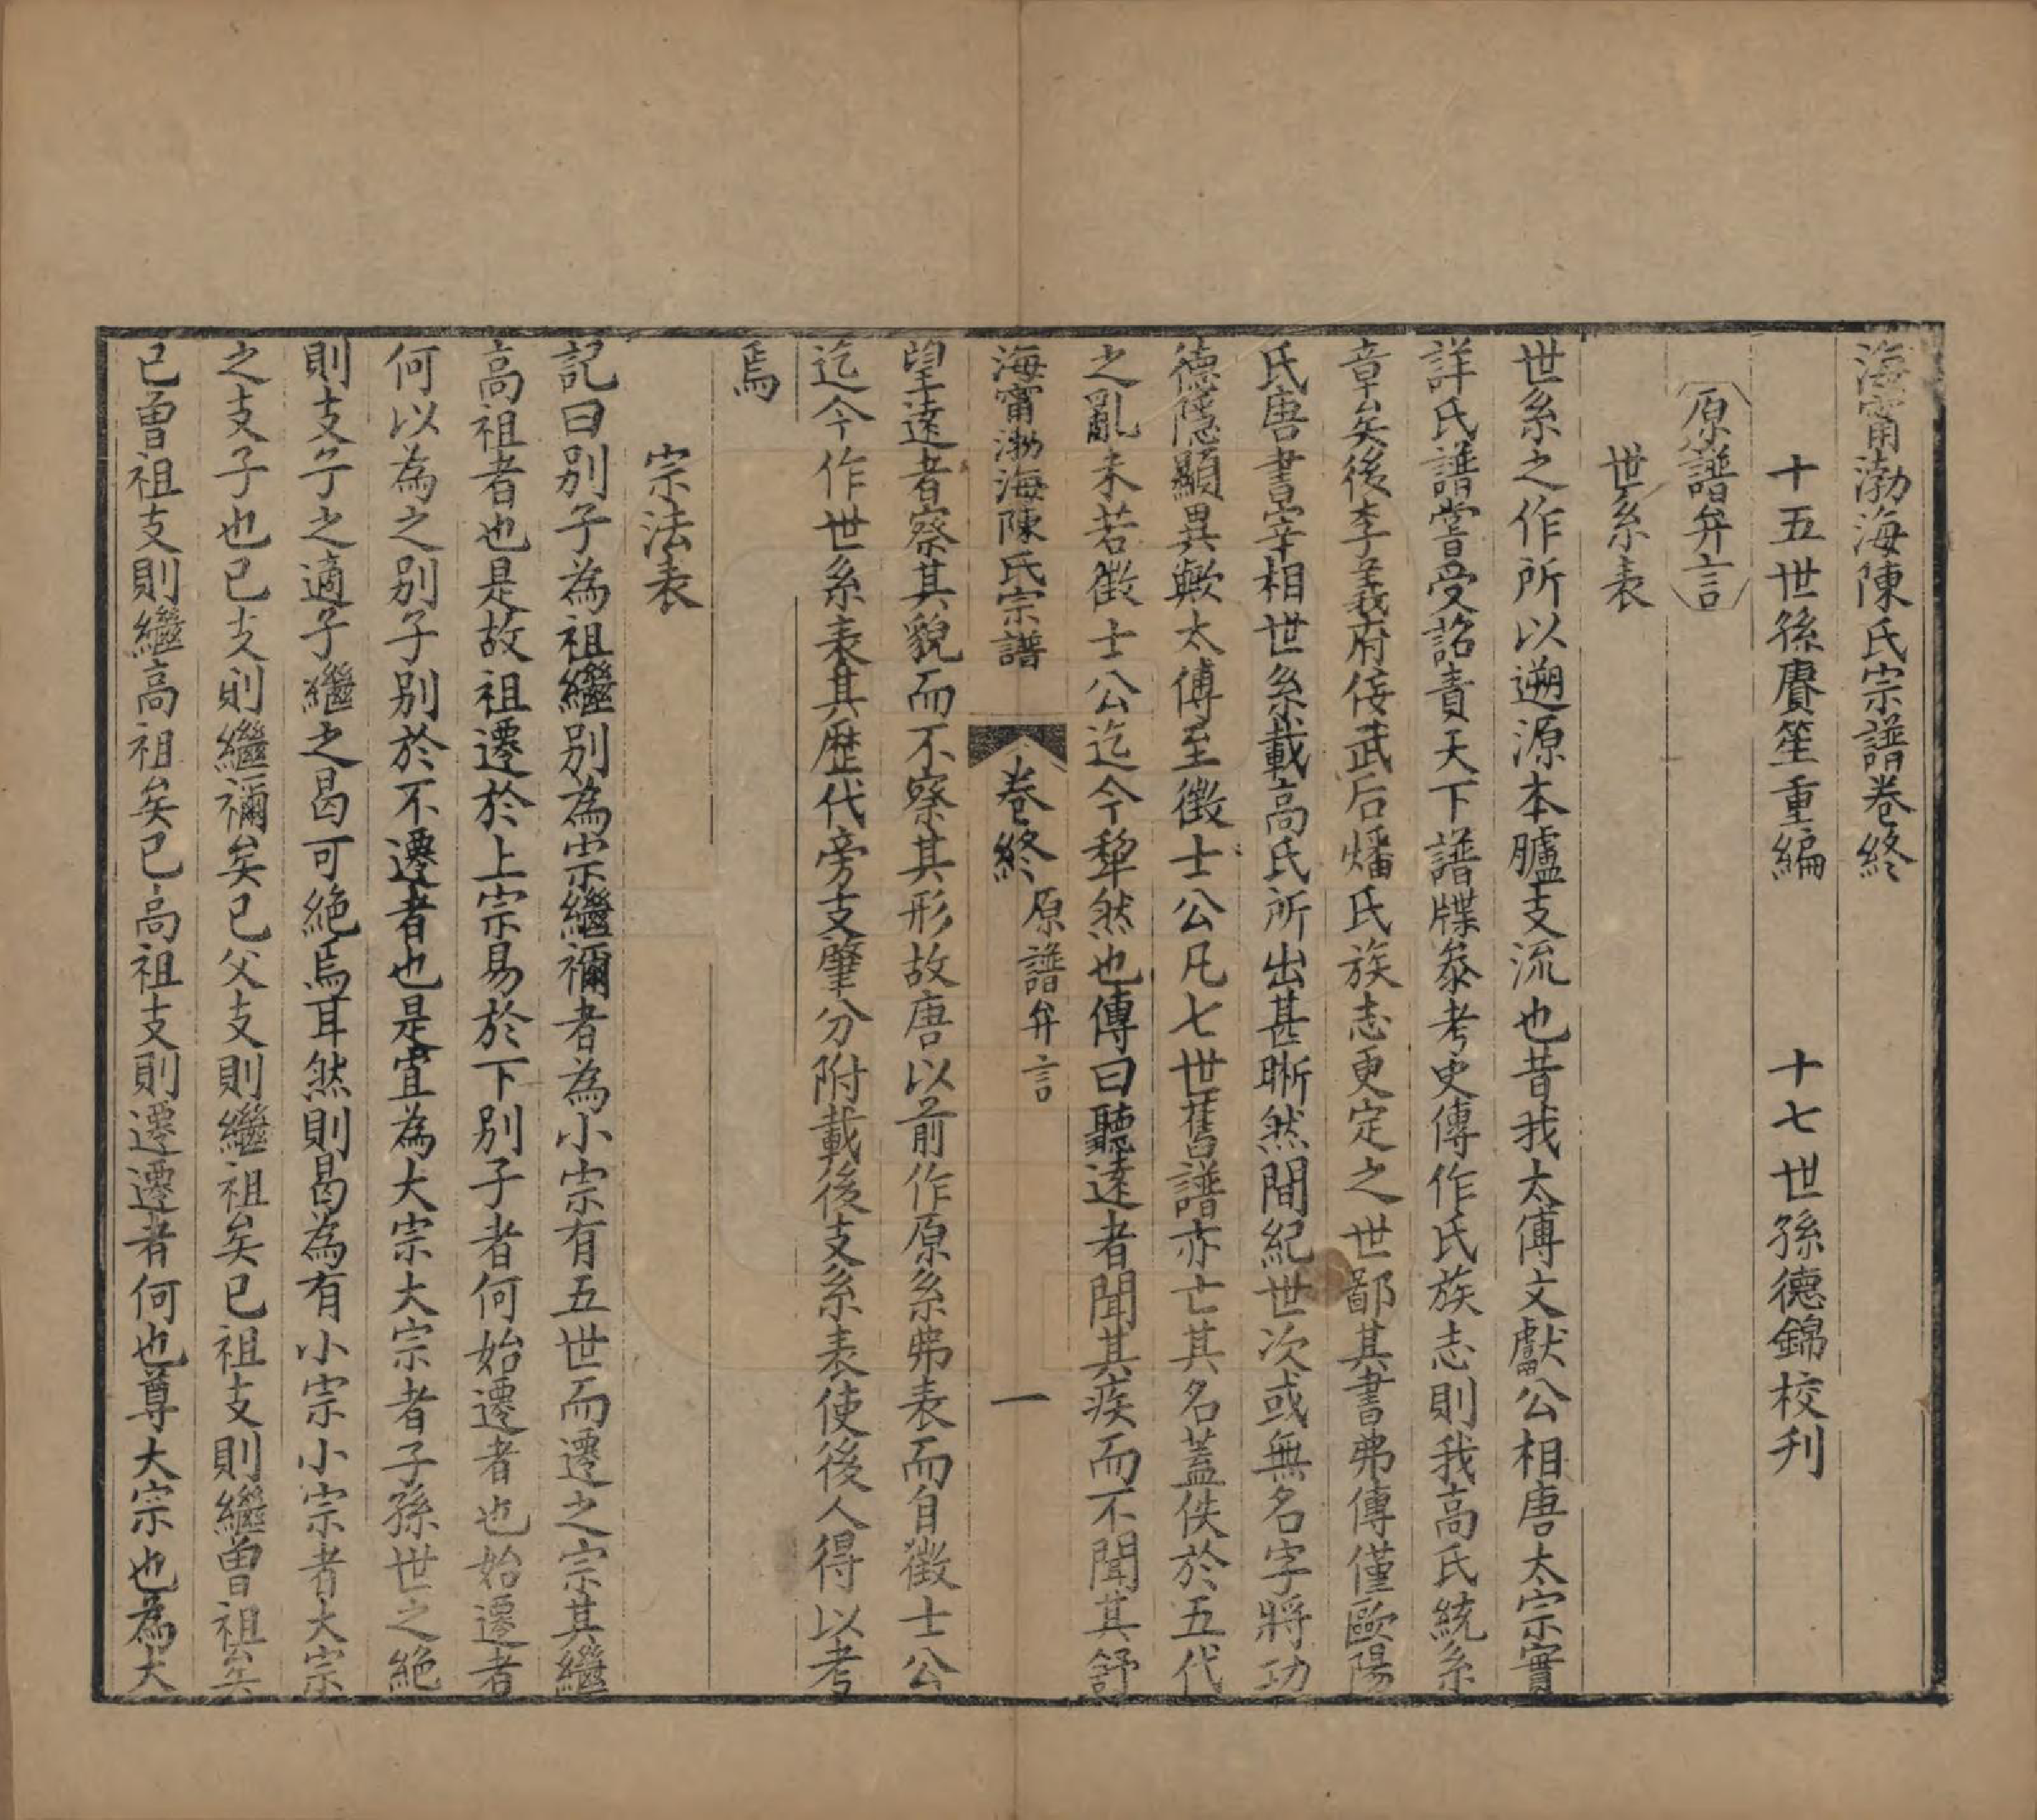 海甯渤海陳氏宗譜卷終
十五世孫賡笙重編　十七世孫德錦校刋
原譜弁言
世系表
世系之作所以遡源本臚支流也昔我太傅文獻公相唐太宗實
詳氏譜嘗受詔責天下譜牒叅考史傳作氏族志則我高氏統系
章矣後李義府侫武后燔氏族志更定之世鄙其書弗傳僅歐陽
氏唐書宰相世系載高氏所出甚晰然間紀世次或無名字將功
德隱顯異歟太傅至徵士公凡七世舊譜亦亡其名蓋佚於五代
之亂未若徵士公迄今犂然也傳曰聽逺者聞其疾而不聞其舒
海甯渤海陳氏宗譜　卷終　原譜弁言　一
望逺者察其貌而不察其形故唐以前作原系弗表而自徵士公
迄今作世系表其歴代旁支肇分附載後支系表使後人得以考
焉
宗法表
記曰别子為祖繼别為宗繼禰者為小宗有五世而遷之宗其繼
高祖者也是故祖遷於上宗易於下别子者何始遷者也始遷者
何以為之别子别於不遷者也是宜為大宗大宗者子孫世之絶
則支子之適子繼之曷可絶焉耳然則曷為有小宗小宗者大宗
之支子也已支則繼禰矣已父支則繼祖矣已祖支則繼曽祖矣
已曽祖支則繼高祖矣已高祖支則遷遷者何也尊大宗也為大